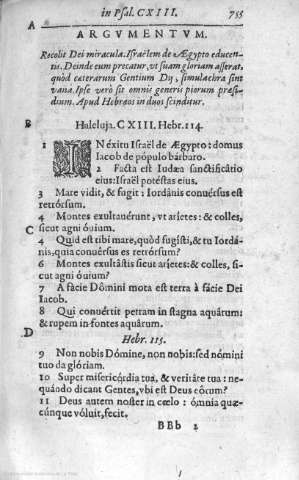 in Psal. CXIII. 755
A
ARGVMENTVM.
Recolit Dei miracula, Israëlem de Ægypto educen-
tis. Deinde eum precatur, vt suam gloriam asserat,
quòd cæterarum Gentium Dij, simulachra sint
vana. Ipse verò sit omnis generis piorum præsi-
dium. Apud Hebræos in duos scinditur.
B Haleluja. CXIII. Hebr. 114.
1 IN éxitu Israël de Ægypto: domus
Iacob de pópulo bárbaro.
2 Facta est Iudæa sanctificátio
eius: Israël potéstas eius.
3 Mare vidit, & fugit: Iordánis convérsus est
retrórsum.
4 Montes exultavérunt, vt aríetes: & colles,
C sicut agni óuium.
4 Quid est tibi mare, quòd fugísti, & tu Iordá-
nis, quia convérsus es retrórsum?
6 Montes exultástis sicut aríetes: & colles, si-
cut agni óuium?
7 A fácie Dómini mota est terra à fácie Dei
Iacob.
8 Qui convértit petram in stagna aquárum:
& rupem in fontes aquárum.
D
Hebr. 115.
9 Non nobis Dómine, non nobis: sed nómini
tuo da glóriam.
10 Super misericórdia tua, & veritáte tua: ne-
quándo dicant Gentes, vbi est Deus eórum?
11 Deus autem noster in cœlo: ómnia quæ-
cúnque vóluit, fecit.
BBb 2